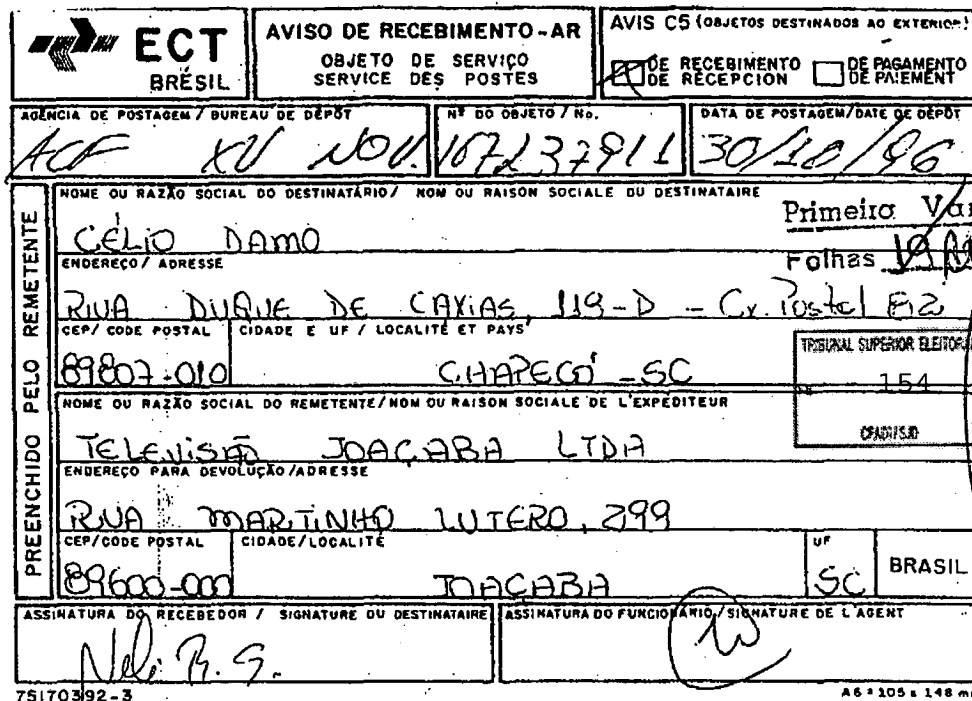 ECT
BRÉSIL
AVISO DE RECEBIMENTO-AR
OBJETO DE SERVIÇO
SERVICE DES POSTES
AVIS C5 (OBJETOS DESTINADOS AO EXTERIOR)
DE RECEBIMENTO
DE RÉCEPCION
DE PAGAMENTO
DE PAIEMENT
AGÊNCIA DE POSTAGEM / BUREAU DE DÉPÔT
Nº DO OBJETO / No.
DATA DE POSTAGEM/DATE DE DÉPÔT
ACF XV NOV.
167237911
30/10/96
PREENCHIDO PELO REMETENTE
NOME OU RAZÃO SOCIAL DO DESTINATÁRIO / NOM OU RAISON SOCIALE DU DESTINATAIRE
Primeira
CÉLIO DAMO
Folhas
ENDEREÇO / ADRESSE
RUA DUQUE DE CAXIAS, 119-D - Cx. Postal
CEP/ CODE POSTAL
CIDADE E UF / LOCALITÉ ET PAYS
89807-010
CHAPECÓ - SC
TRIBUNAL SUPERIOR ELEITORAL
154
NOME OU RAZÃO SOCIAL DO REMETENTE/NOM OU RAISON SOCIALE DE L'EXPÉDITEUR
TELEVISÃO JOAÇABA LTDA
ENDEREÇO PARA DEVOLUÇÃO/ADRESSE
RUA MARTINHO LUTERO, 299
CEP/CODE POSTAL
CIDADE/LOCALITÉ
UF
89600-000
JOAÇABA
SC
BRASIL
ASSINATURA DO RECEBEDOR / SIGNATURE DU DESTINATAIRE
ASSINATURA DO FUNCIONÁRIO/SIGNATURE DE L'AGENT
75170392-3
A6 = 105 x 148 m